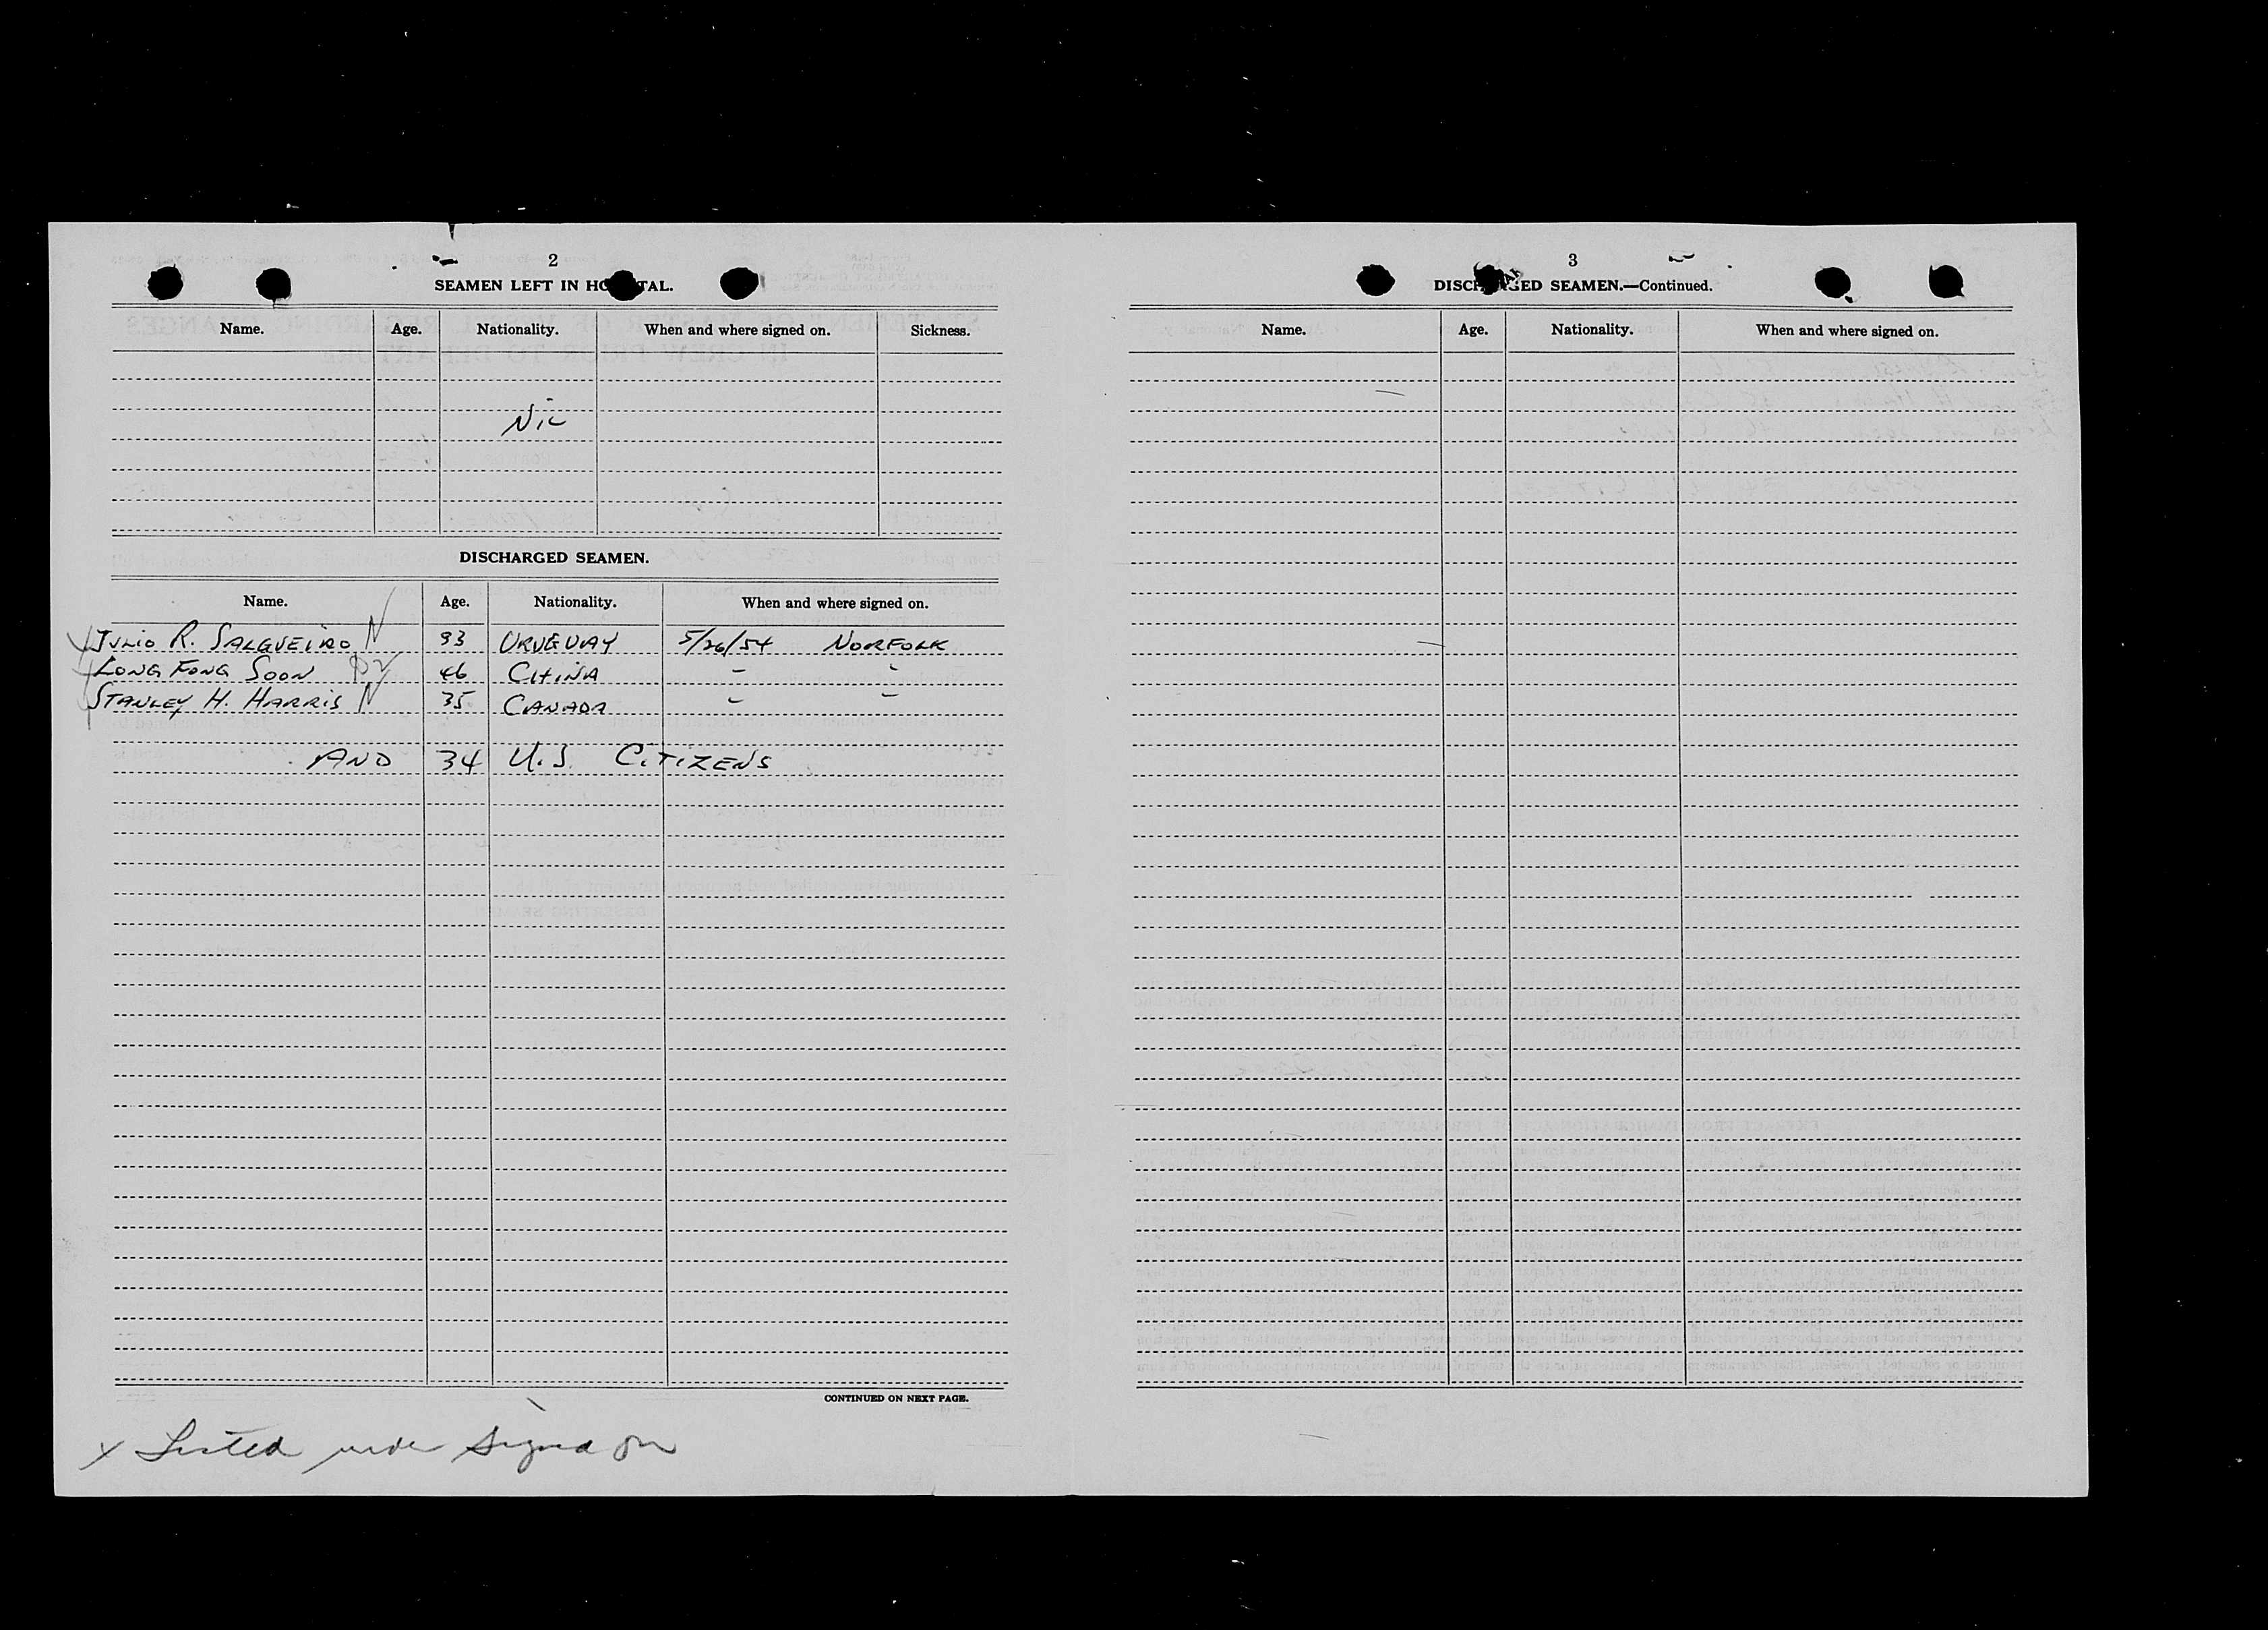 2
SEAMEN LEFT IN HO TAL.
Name. Age. Nationality. When and where signed on. Sickness.
Nil
DISCHARGED SEAMEN.
Name. Age. Nationality. When and where signed on.
JULIO R. SALGUEIRO N 93 URUGUAY 5/26/54 NORFOLK
LONG FONG SOON 46 CHINA " "
STANLEY H. HARRIS N 35 CANADA " "
AND 34 U.S. CITIZENS
CONTINUED ON NEXT PAGE.
x Listed under signed on
3
DISCH ED SEAMEN.—Continued.
Name. Age. Nationality. When and where signed on.